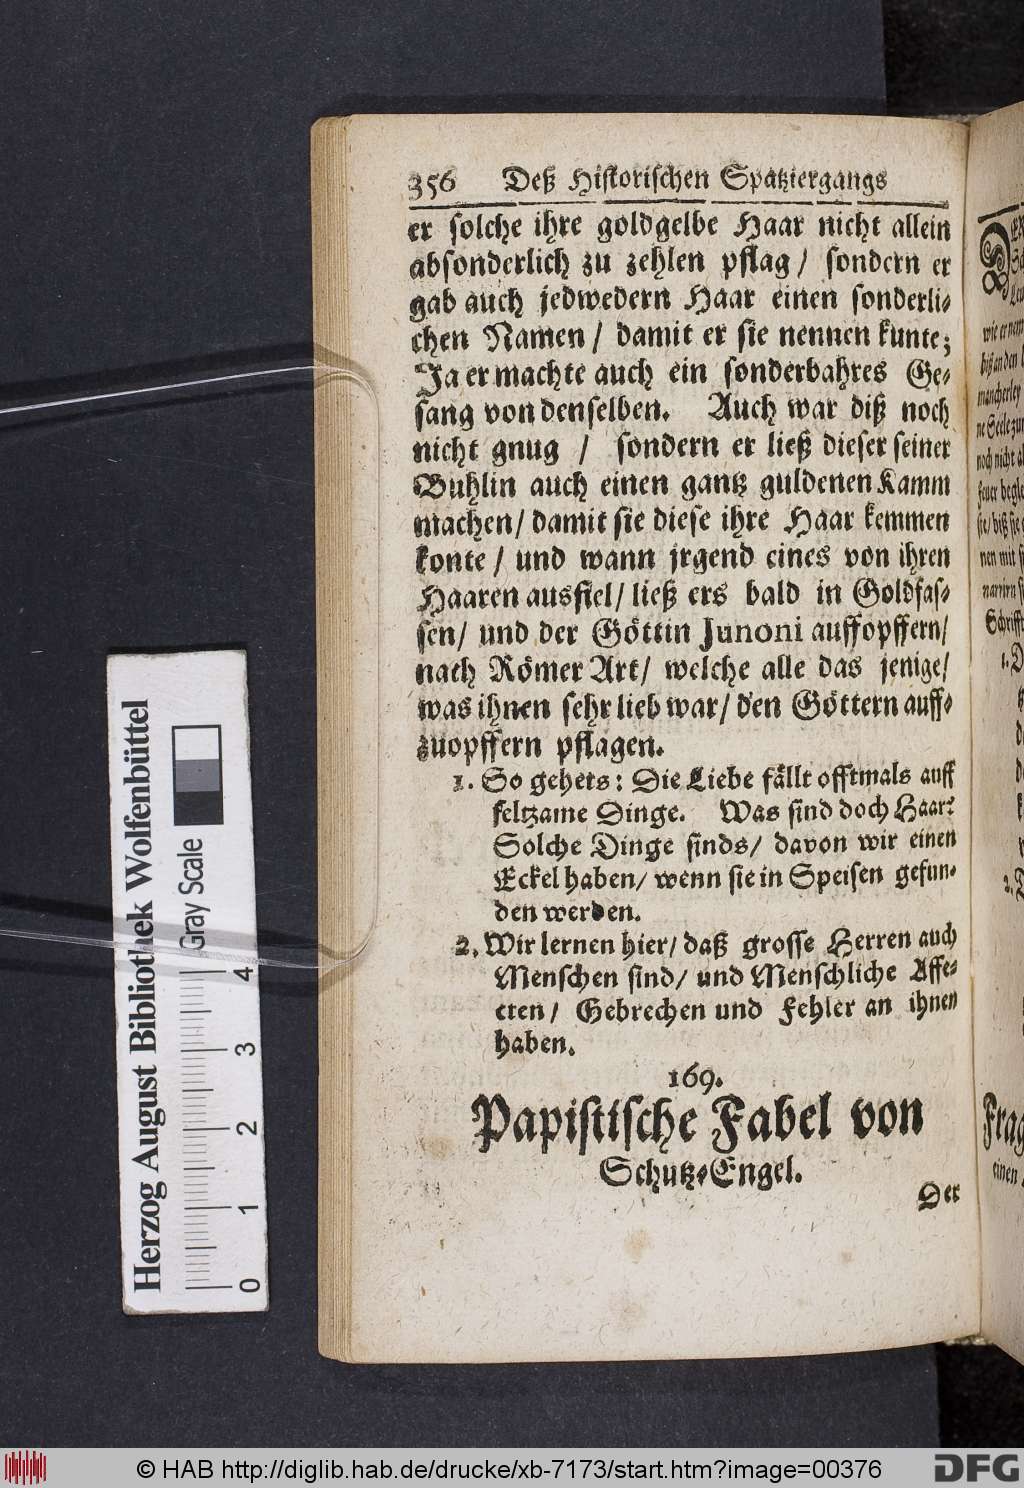 356 Deß Historischen Spatziergangs
er solche ihre goldgelbe Haar nicht allein
absonderlich zu zehlen pflag / sondern er
gab auch jedwedern Haar einen sonderli-
chen Namen / damit er sie nennen kunte;
Ja er machte auch ein sonderbahres Ge-
sang von denselben. Auch war diß noch
nicht gnug / sondern er ließ dieser seiner
Buhlin auch einen gantz guldenen Kamm
machen / damit sie diese ihre Haar kemmen
konte / und wann jrgend eines von ihren
Haaren ausfiel / ließ ers bald in Gold fas-
sen / und der Göttin Junoni auffopffern /
nach Römer Art / welche alle das jenige /
was ihnen sehr lieb war / den Göttern auff-
zuopffern pflagen.
1. So gehets: Die Liebe fällt offtmals auff
seltzame Dinge. Was sind doch Haar?
Solche Dinge sinds / davon wir einen
Eckel haben / wenn sie in Speisen gefun-
den werden.
2. Wir lernen hier / daß grosse Herren auch
Menschen sind / und Menschliche Affe-
cten / Gebrechen und Fehler an ihnen
haben.
169.
Papistische Fabel von
Schutz-Engel.
Der
wie er
biß an den
mancherley
ne Seele zu
noch nicht
feuer
sie / biß sie
nen mit
Schrifft
1. D
einen
Herzog August Bibliothek Wolfenbüttel
Gray Scale
0 1 2 3 4
© HAB http://diglib.hab.de/drucke/xb-7173/start.htm?image=00376
DFG